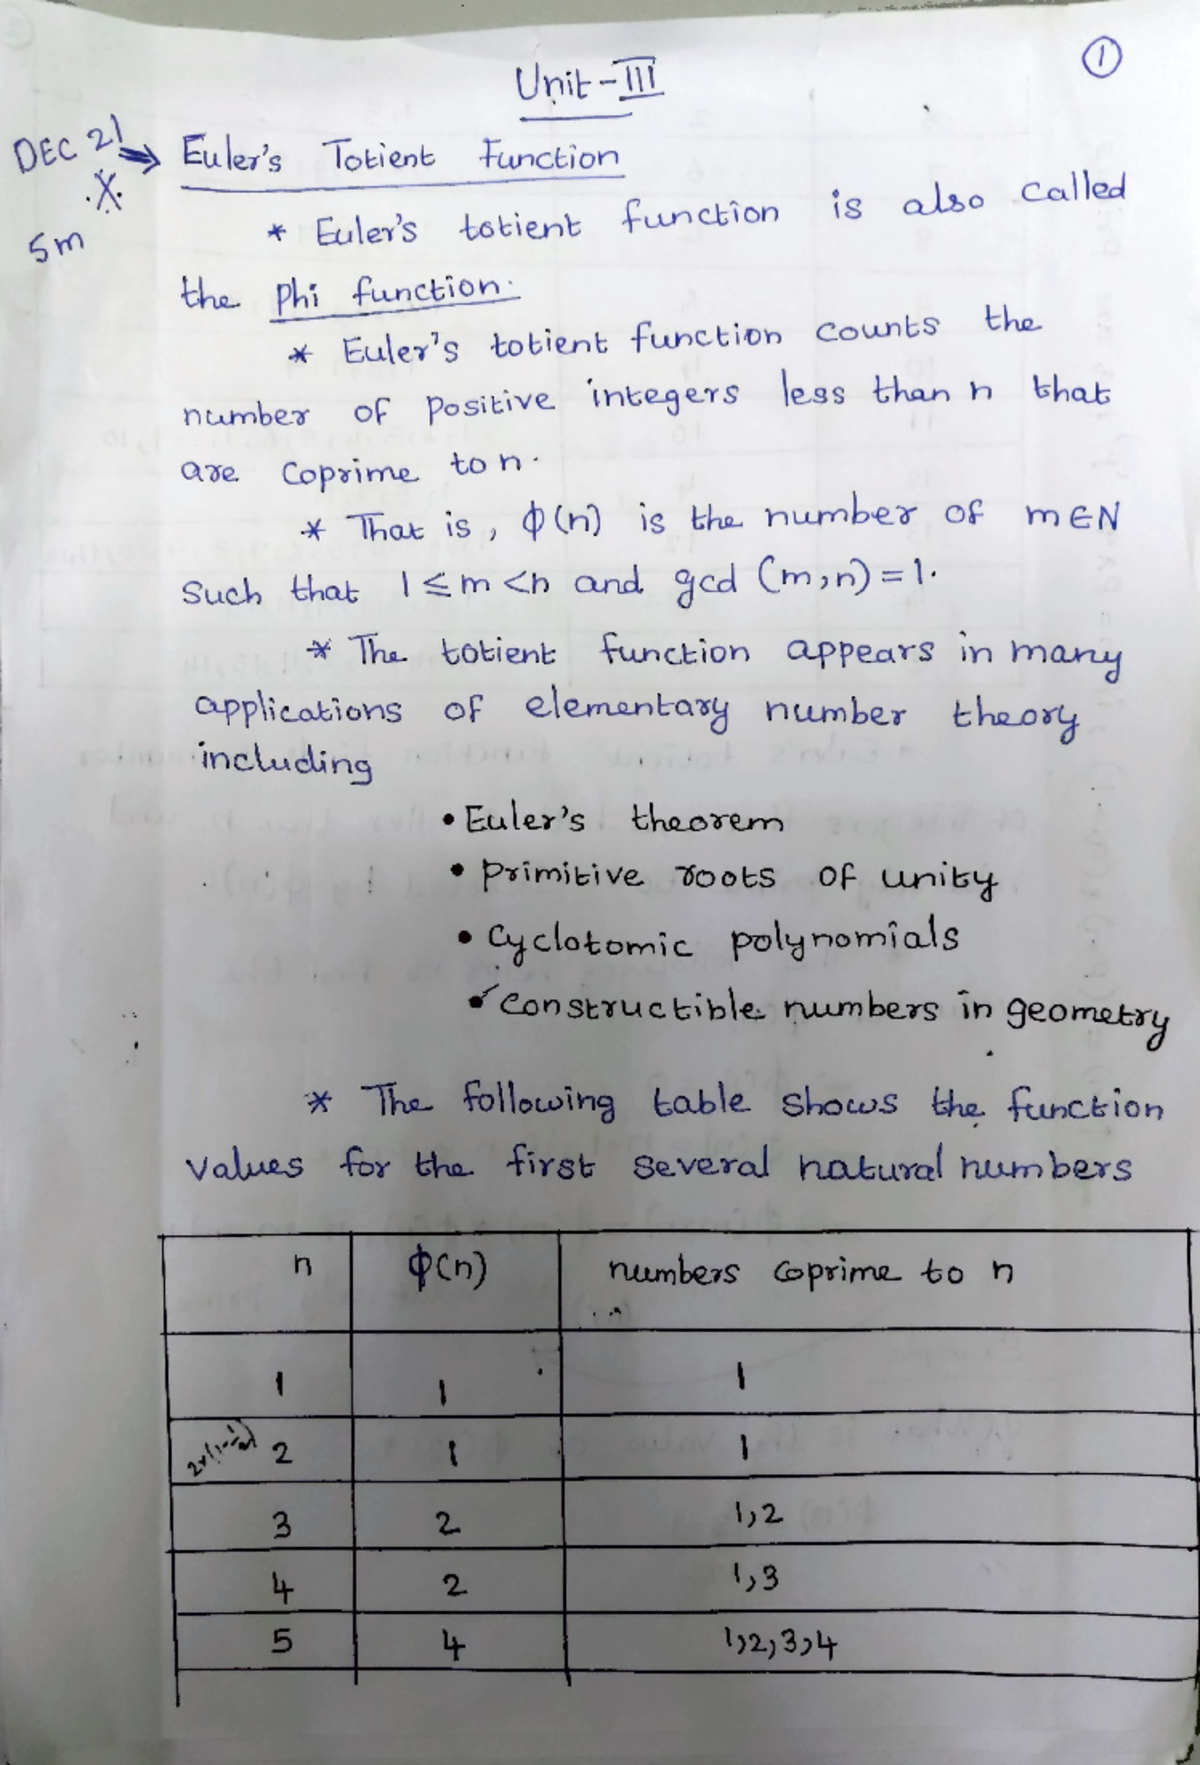 ①
Unit-III
DEC 21 → Euler's Totient Function
5m
* Euler's totient function is also called
the phi function.
* Euler's totient function counts the
number of positive integers less than n that
are coprime to n.
* That is, ϕ(n) is the number of m∈N
Such that 1≤m<n and gcd (m,n)=1.
* The totient function appears in many
applications of elementary number theory
including
• Euler's theorem
• primitive roots of unity
• Cyclotomic polynomials
• constructible numbers in geometry
* The following table shows the function
values for the first several natural numbers
n ϕ(n) numbers coprime to n
1 1 1
2 1 1
3 2 1,2
4 2 1,3
5 4 1,2,3,4